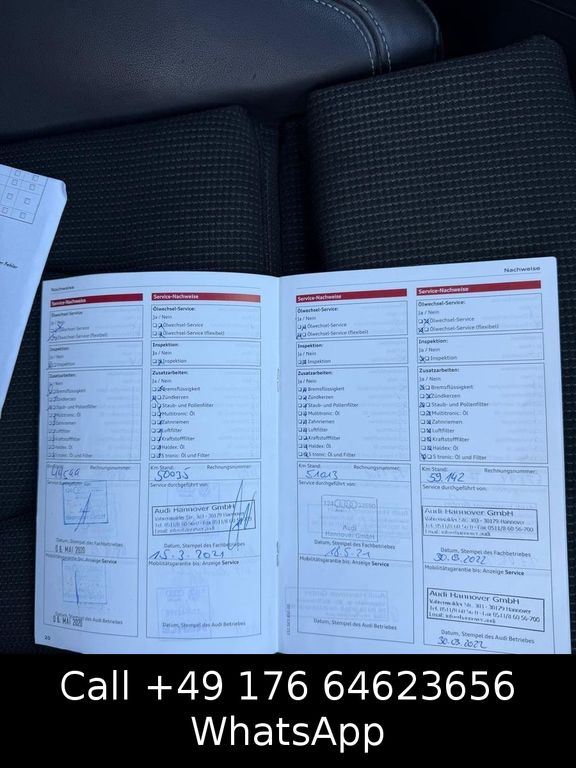 Nachweise
Service-Nachweise
Ölwechsel-Service:
Ja / Nein
Ölwechsel-Service
Ölwechsel-Service (flexibel)
Inspektion:
Ja / Nein
Inspektion
Zusatzarbeiten:
Ja / Nein
Bremsflüssigkeit
Zündkerzen
Staub- und Pollenfilter
Multitronic: Öl
Zahnriemen
Luftfilter
Kraftstofffilter
Haldex: Öl
S tronic: Öl und Filter
Rechnungsnummer:
Service durchgeführt von:
Datum, Stempel des Fachbetriebes
0 6. MAI 2020
Mobilitätsgarantie bis: Anzeige Service
Datum, Stempel des Audi Betriebes
0 6. MAI 2020
20
Service-Nachweise
Ölwechsel-Service:
Ja / Nein
Ölwechsel-Service
Ölwechsel-Service (flexibel)
Inspektion:
Ja / Nein
Inspektion
Zusatzarbeiten:
Ja / Nein
Bremsflüssigkeit
Zündkerzen
Staub- und Pollenfilter
Multitronic: Öl
Zahnriemen
Luftfilter
Kraftstofffilter
Haldex: Öl
S tronic: Öl und Filter
Km Stand: Rechnungsnummer:
50035
Service durchgeführt von:
Audi Hannover GmbH
Vahrenwalder Str. 303 - 30179 Hannover
Datum, Stempel des Fachbetriebes
15.3.2021
Mobilitätsgarantie bis: Anzeige Service
Datum, Stempel des Audi Betriebes
Nachweise
Service-Nachweise
Ölwechsel-Service:
Ja / Nein
Ölwechsel-Service
Ölwechsel-Service (flexibel)
Inspektion:
Ja / Nein
Inspektion
Zusatzarbeiten:
Ja / Nein
Bremsflüssigkeit
Zündkerzen
Staub- und Pollenfilter
Multitronic: Öl
Zahnriemen
Luftfilter
Kraftstofffilter
Haldex: Öl
S tronic: Öl und Filter
Km Stand: Rechnungsnummer:
51013
Service durchgeführt von:
Audi
Hannover GmbH
Datum, Stempel des Fachbetriebes
18.5.21
Mobilitätsgarantie bis: Anzeige Service
Datum, Stempel des Audi Betriebes
Service-Nachweise
Ölwechsel-Service:
Ja / Nein
Ölwechsel-Service
Ölwechsel-Service (flexibel)
Inspektion:
Ja / Nein
Inspektion
Zusatzarbeiten:
Ja / Nein
Bremsflüssigkeit
Zündkerzen
Staub- und Pollenfilter
Multitronic: Öl
Zahnriemen
Luftfilter
Kraftstofffilter
Haldex: Öl
S tronic: Öl und Filter
Km Stand: Rechnungsnummer:
59.142
Service durchgeführt von:
Audi Hannover GmbH
Vahrenwalder Str. 303 - 30179 Hannover
Tel. 0511/8 60 56-0 - Fax 0511/8 60 56-700
Email: info@hannover.audi
Datum, Stempel des Fachbetriebes
30.03.2022
Mobilitätsgarantie bis: Anzeige Service
Audi Hannover GmbH
Vahrenwalder Str. 303 - 30179 Hannover
Tel. 0511/8 60 56-0 - Fax 0511/8 60 56-700
Email: info@hannover.audi
Datum, Stempel des Audi Betriebes
30.03.2022
Call +49 176 64623656
WhatsApp